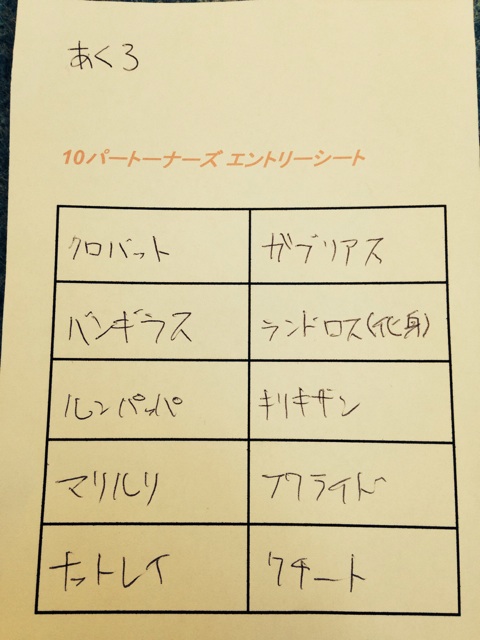 あくろ
10パートーナーズ エントリーシート
クロバット ガブリアス
バンギラス ランドロス(化身)
ルンパッパ キリキザン
マリルリ フワライド
ナットレイ クチート